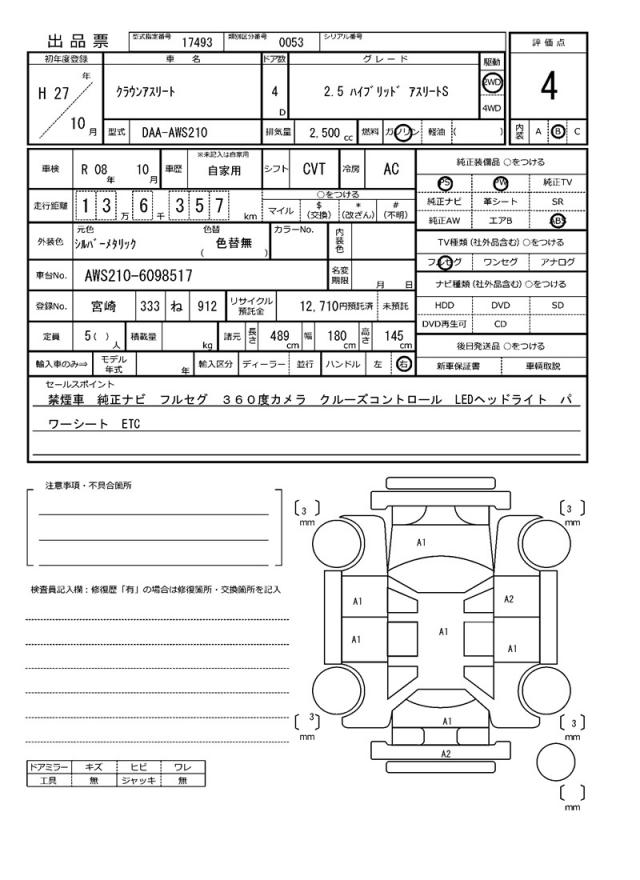 出品票 型式指定番号 17493 類別区分番号 0053 シリアル番号
評価点
4
内装 A B C
初年度登録 車名 ドア数 グレード 駆動
H 27 年 10 月
クラウンアスリート 4 D 2.5 ハイブリッド アスリートS 2WD
4WD
型式 DAA-AWS210 排気量 2,500 cc 燃料 ガソリン 軽油 ( )
車検 R 08 年 10 月 車歴 ※未記入は自家用 自家用 シフト CVT 冷房 AC
走行距離 1 3 万 6 千 3 5 7 km
○をつける
マイル $ (交換) * (改ざん) # (不明)
外装色 元色 シルバーメタリック 色替 ( 色替無 ) カラーNo. 内装色
車台No. AWS210-6098517 名変期限 月 日
登録No. 宮崎 333 ね 912 リサイクル預託金 12,710円預託済 未預託
定員 5( ) 人 積載量 kg 諸元 長さ 489 cm 幅 180 cm 高さ 145 cm
輸入車のみ⇒ モデル年式 年 輸入区分 ディーラー 並行 ハンドル 左 右
純正装備品 ○をつける
PS PW 純正TV
純正ナビ 革シート SR
純正AW エアB ABS
TV種類 (社外品含む) ○をつける
フルセグ ワンセグ アナログ
ナビ種類 (社外品含む) ○をつける
HDD DVD SD
DVD再生可 CD
後日発送品 ○をつける
新車保証書 車輌取説
セールスポイント
禁煙車 純正ナビ フルセグ 360度カメラ クルーズコントロール LEDヘッドライト パ
ワーシート ETC
注意事項・不具合箇所
検査員記入欄：修復歴「有」の場合は修復箇所・交換箇所を記入
ドアミラー キズ ヒビ ワレ
工具 無 ジャッキ 無
3 mm
3 mm
A1
A1
A2
A1
A1
A1
A1
3 mm
3 mm
A2
mm